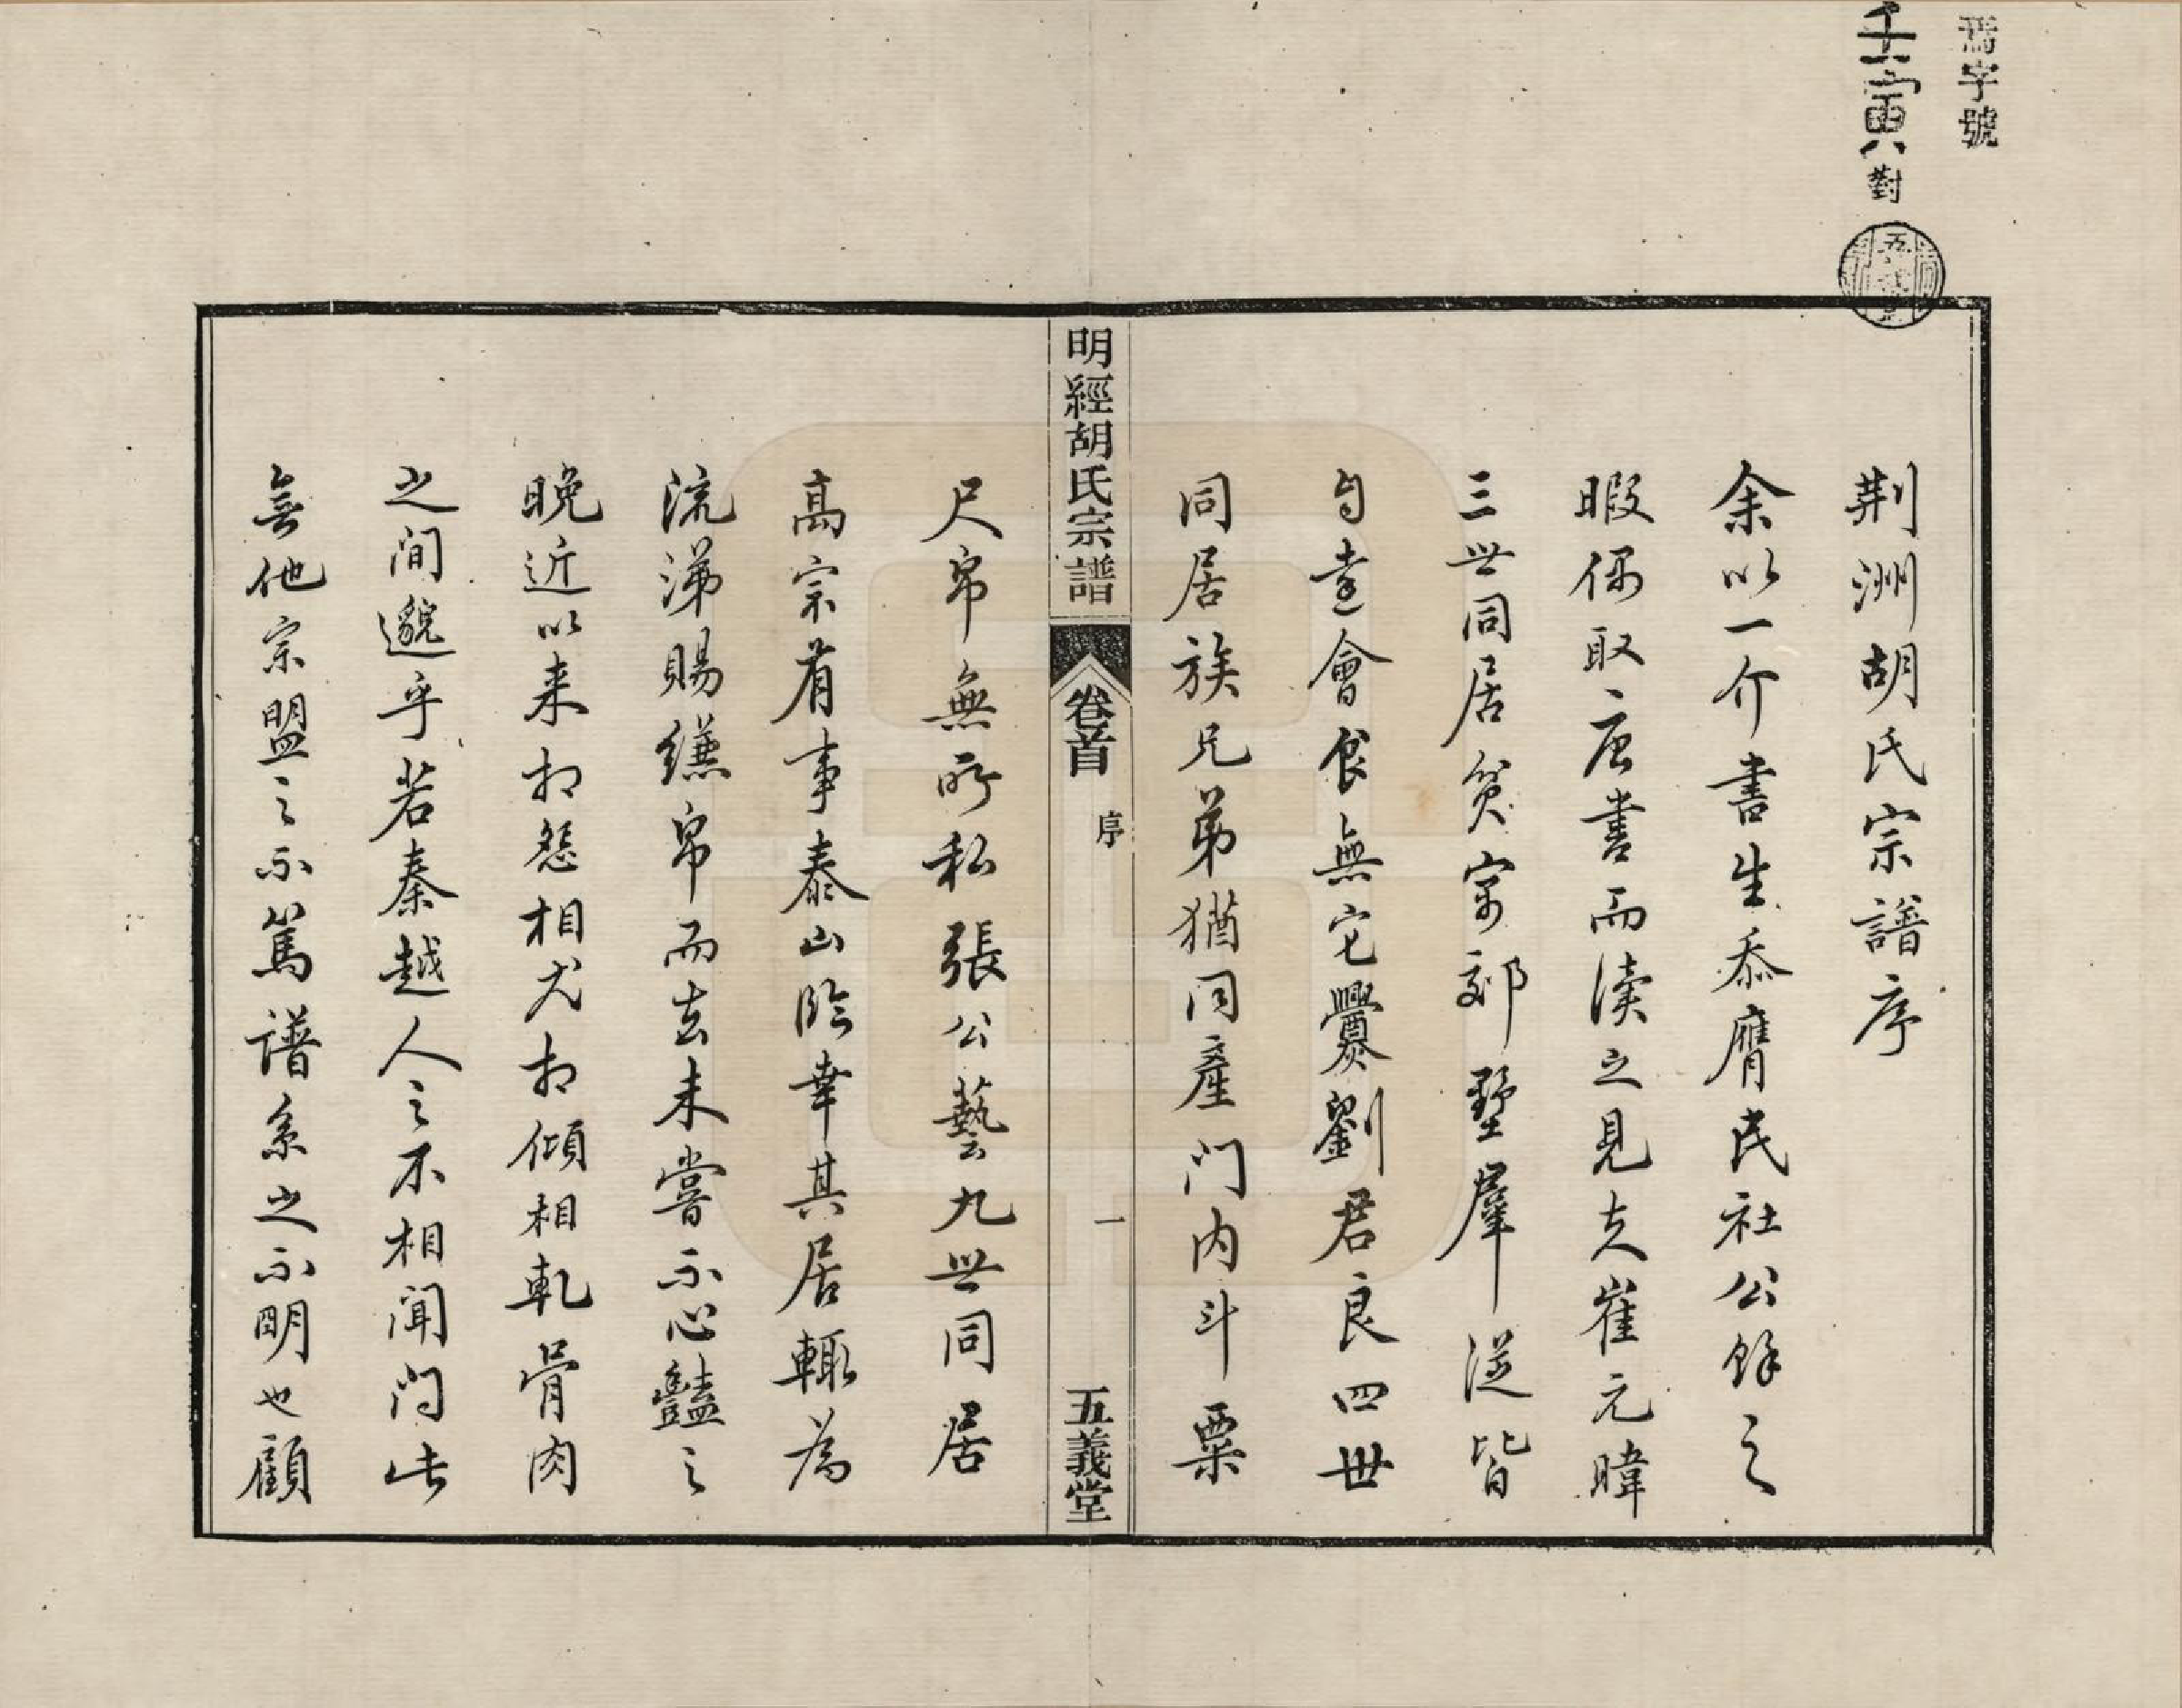 字號
壬寅對
荆洲胡氏宗譜序
余以一介書生忝膺民社公餘之
暇係取唐書而读之見夫崔元暐
三世同居貧寓郊墅羣從皆
自遠會食無它爨劉君良四世
同居族兄弟猶同產门内斗粟
尺帛無所私張公藝九世同居
高宗有事泰山臨幸其居輒为
流涕賜縑帛而去未嘗不心豔之
晚近以来相怨相尤相傾相軋骨肉
之间邈乎若秦越人之不相闻问此
無他宗盟之不篤譜系之不明也顧
明經胡氏宗譜
卷首
序
一
五義堂